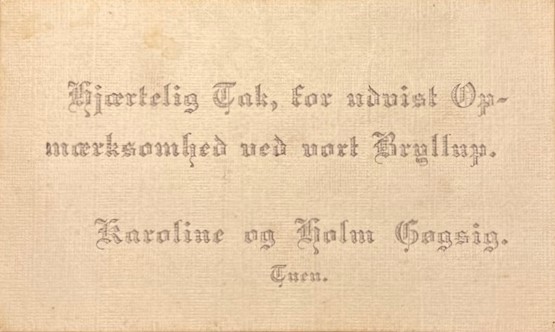 Hjærtelig Tak, for udvist Op-
mærksomhed ved vort Bryllup.
Karoline og Holm Gøgsig.
Tuen.